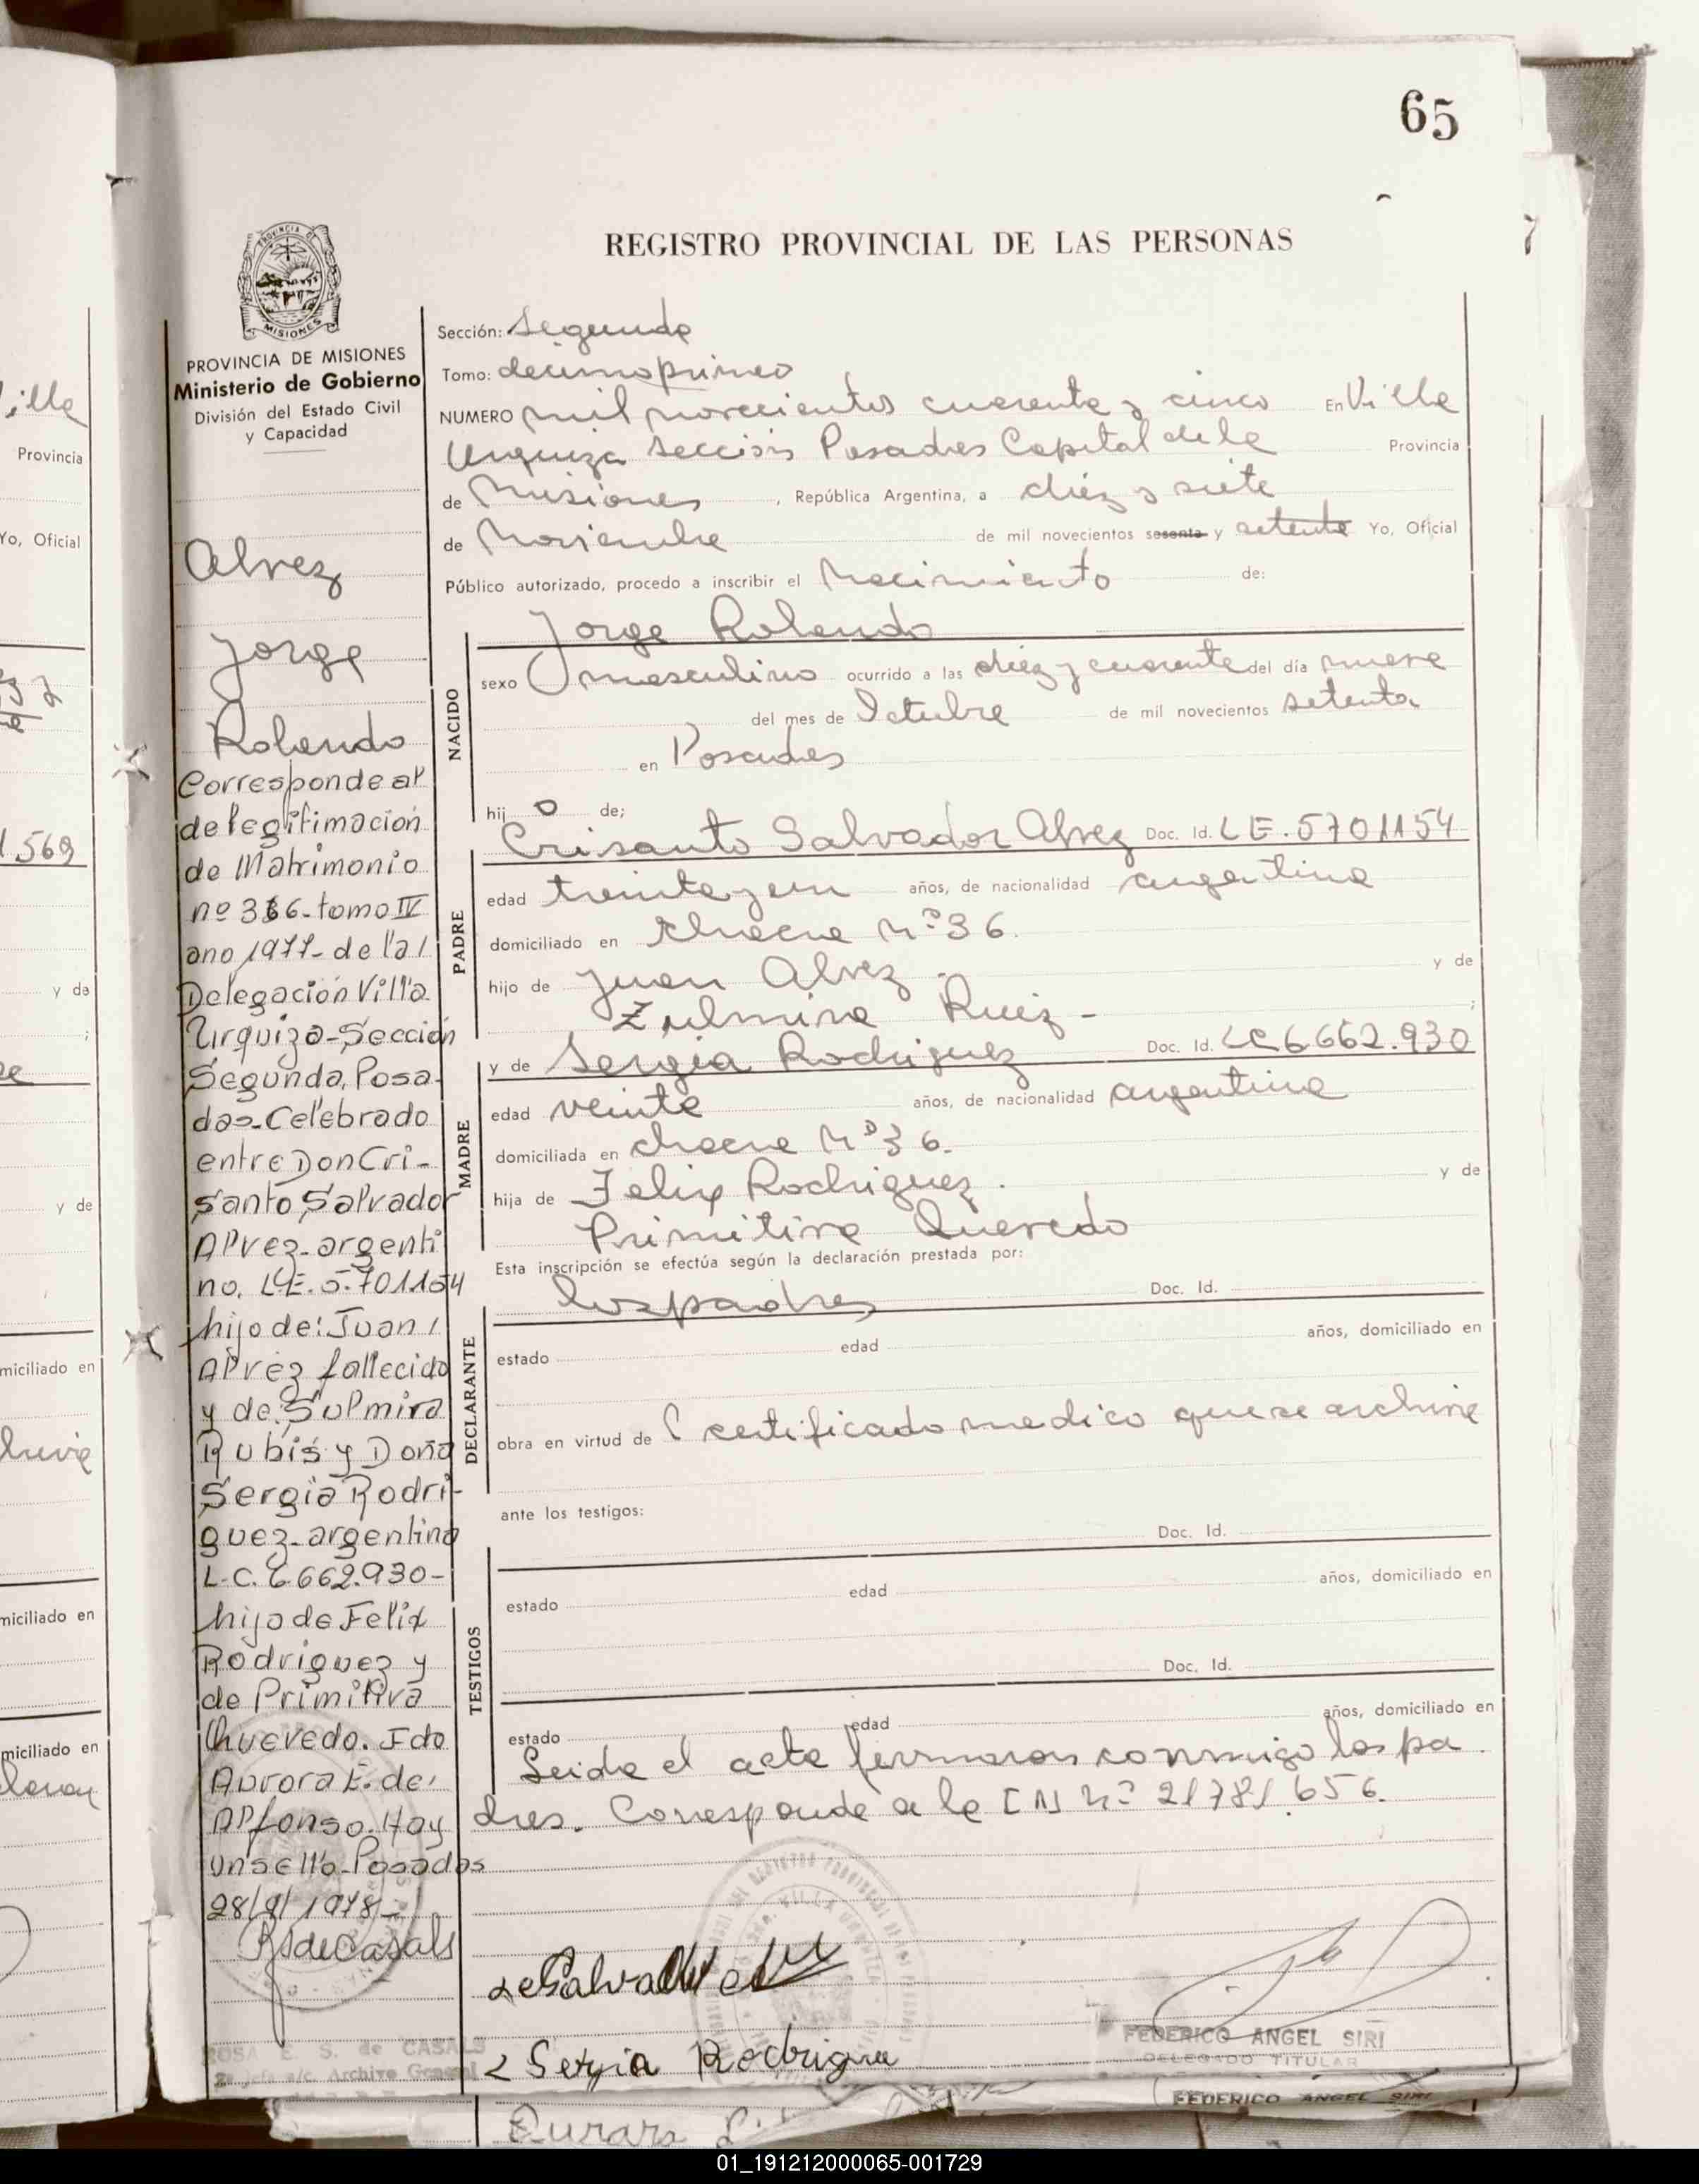 65
REGISTRO PROVINCIAL DE LAS PERSONAS
PROVINCIA DE MISIONES
Ministerio de Gobierno
División del Estado Civil
y Capacidad
Alvez
Jorge
Rolando
Corresponde al
de legitimación
de Matrimonio
nº 366-tomo IV
ano 1977- de la
Delegación Villa
Urquiza-Sección
Segunda, Posa-
das-Celebrado
entre Don Cri-
santo Salvador
Alvez-argenti
no, L.E. 5.701154
hijo de: Juan
Alvez fallecido
y de Sulmira
Rubis y Doña
Sergia Rodri-
guez-argentina
L.C. 6.662.930-
hijo de Felix
Rodriguez y
de Primitiva
Chuevedo. Fdo
Aurora E. de
Alfonso. Hay
un sello-Posadas
28/9/1978-
RSdeCasals
ROSA E. S. de CASALS
2ª Jefa a/c. Archivo General
Sección: Segunda
Tomo: decimoprimero
NUMERO mil novecientos cuarenta y cinco En Villa
Urquiza Sección Posadas Capital de la Provincia
de Misiones, República Argentina, a diez y siete
de Noviembre de mil novecientos sesenta y setenta Yo, Oficial
Público autorizado, procedo a inscribir el Nacimiento de:
Jorge Rolando
NACIDO
sexo masculino ocurrido a las diez y cuarenta del día nueve
del mes de Octubre de mil novecientos setenta
en Posadas
hijo de;
PADRE
Crisanto Salvador Alvez Doc. Id. LE. 5701154
edad treinta y un años, de nacionalidad argentina
domiciliado en chacra Nº 36.
hijo de Juan Alvez. y de
Zulmira Ruiz-
MADRE
y de Sergia Rodriguez Doc. Id. LC 6662.930
edad veinte años, de nacionalidad argentina
domiciliada en chacra Nº 36.
hija de Felix Rodriguez. y de
Primitiva Quevedo
Esta inscripción se efectúa según la declaración prestada por:
DECLARANTE
los padres Doc. Id.
estado edad años, domiciliado en
obra en virtud de certificado medico que se archiva
ante los testigos:
TESTIGOS
Doc. Id.
estado edad años, domiciliado en
Doc. Id.
estado edad años, domiciliado en
Leida el acta firmaron conmigo los pa
dres. Corresponde a la CN Nº 21781.656.
Sergia Rodrigue
FEDERICO ANGEL SIRI
DELEGADO TITULAR
FEDERICO ANGEL SIRI
ille
Provincia
Yo, Oficial
1.569
y de
y de
miciliado en
miciliado en
miciliado en
01_191212000065-001729